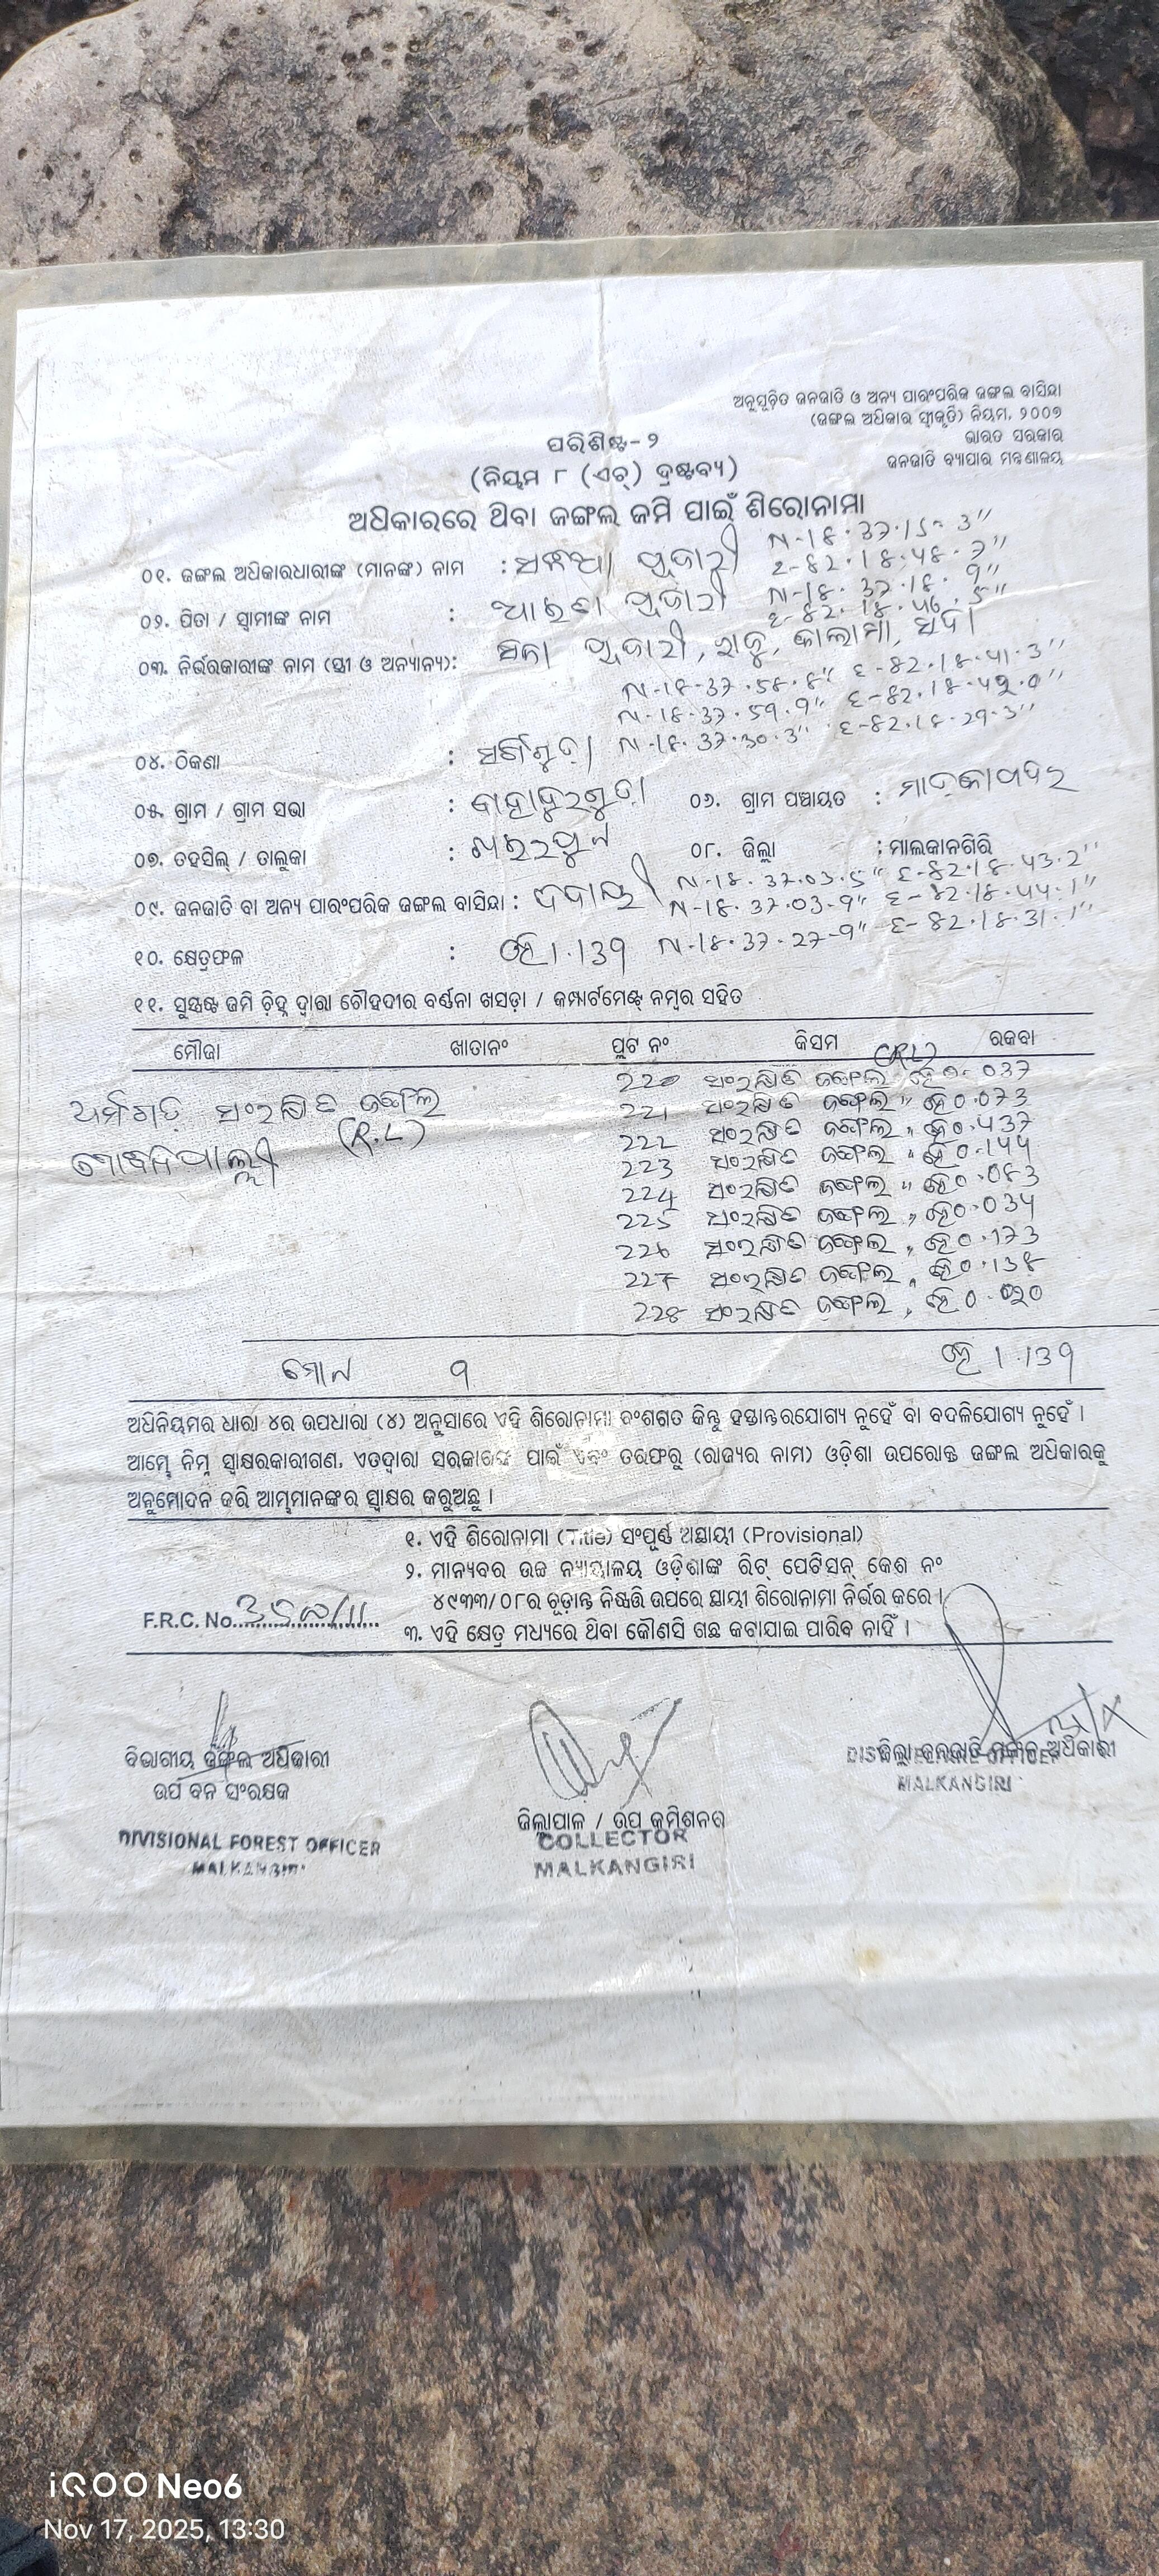 ଅନୁସୂଚିତ ଜନଜାତି ଓ ଅନ୍ୟ ପାରଂପରିକ ଜଙ୍ଗଲ ବାସିନ୍ଦା
(ଜଙ୍ଗଲ ଅଧିକାର ସ୍ୱୀକୃତି) ନିୟମ, ୨୦୦୭
ଭାରତ ସରକାର
ଜନଜାତି ବ୍ୟାପାର ମନ୍ତ୍ରଣାଳୟ
ପରିଶିଷ୍ଟ-୨
(ନିୟମ ୮ (ଏଚ୍) ଦ୍ରଷ୍ଟବ୍ୟ)
ଅଧିକାରରେ ଥିବା ଜଙ୍ଗଲ ଜମି ପାଇଁ ଶିରୋନାମା
N-18.37.15-3"
୦୧. ଜଙ୍ଗଲ ଅଧିକାରଧାରୀଙ୍କ (ମାନଙ୍କ) ନାମ : ପୂଜାରୀ
୦୨. ପିତା / ସ୍ୱାମୀଙ୍କ ନାମ : ପୂଜାରୀ
୦୩. ନିର୍ଭରକାରୀଙ୍କ ନାମ (ସ୍ତ୍ରୀ ଓ ଅନ୍ୟାନ୍ୟ): ପୂଜାରୀ, ରାଜୁ,
N-18-37.58.8" E-82.18.41.3"
N-18-37.59.9" E-82.18.42.0"
୦୪. ଠିକଣା : N-18.37.30.3" E-82.18.29.3"
୦୫. ଗ୍ରାମ / ଗ୍ରାମ ସଭା : ବାହାଦୁରଗୁଡା ୦୬. ଗ୍ରାମ ପଞ୍ଚାୟତ :
୦୭. ତହସିଲ୍ / ତାଲୁକା : ୦୮. ଜିଲ୍ଲା : ମାଲକାନଗିରି
N-18.37.03.5" E-82.18.43.2"
୦୯. ଜନଜାତି ବା ଅନ୍ୟ ପାରଂପରିକ ଜଙ୍ଗଲ ବାସିନ୍ଦା : N-18.37.03-9" E-82.18.44.1"
୧୦. କ୍ଷେତ୍ରଫଳ : ହେ 1.139 N-18.37-27-9" E-82.18.31.1"
୧୧. ସୁସ୍ପଷ୍ଟ ଜମି ଚିହ୍ନ ଦ୍ୱାରା ଚୌହଦୀର ବର୍ଣ୍ଣନା ଖସଡ଼ା / କମ୍ପାର୍ଟମେଣ୍ଟ୍ ନମ୍ବର ସହିତ
ମୌଜା ଖାତାନଂ ପ୍ଲଟ ନଂ କିସମ ରକବା
(R.L)
220 ସଂରକ୍ଷିତ ଜଙ୍ଗଲ ହେ 0.037
ସଂରକ୍ଷିତ ଜଙ୍ଗଲ 221 ସଂରକ୍ଷିତ ଜଙ୍ଗଲ " ହେ 0.073
(R.L) 222 ସଂରକ୍ଷିତ ଜଙ୍ଗଲ " ହେ 0.437
223 ସଂରକ୍ଷିତ ଜଙ୍ଗଲ " ହେ 0.144
224 ସଂରକ୍ଷିତ ଜଙ୍ଗଲ " ହେ 0.083
225 ସଂରକ୍ଷିତ ଜଙ୍ଗଲ " ହେ 0.034
226 ସଂରକ୍ଷିତ ଜଙ୍ଗଲ " ହେ 0.173
227 ସଂରକ୍ଷିତ ଜଙ୍ଗଲ " ହେ 0.138
228 ସଂରକ୍ଷିତ ଜଙ୍ଗଲ " ହେ 0.020
ମୋଟ 9 ହେ 1.139
ଅଧିନିୟମର ଧାରା ୪ର ଉପଧାରା (୪) ଅନୁସାରେ ଏହି ଶିରୋନାମା ବଂଶଗତ କିନ୍ତୁ ହସ୍ତାନ୍ତରଯୋଗ୍ୟ ନୁହେଁ ବା ବଦଳିଯୋଗ୍ୟ ନୁହେଁ ।
ଆମ୍ଭେ ନିମ୍ନ ସ୍ୱାକ୍ଷରକାରୀଗଣ, ଏତଦ୍ୱାରା ସରକାରଙ୍କ ପାଇଁ ଏବଂ ତରଫରୁ (ରାଜ୍ୟର ନାମ) ଓଡ଼ିଶା ଉପରୋକ୍ତ ଜଙ୍ଗଲ ଅଧିକାରକୁ
ଅନୁମୋଦନ କରି ଆମ୍ଭମାନଙ୍କର ସ୍ୱାକ୍ଷର କରୁଅଛୁ ।
୧. ଏହି ଶିରୋନାମା (Title) ସଂପୂର୍ଣ୍ଣ ଅସ୍ଥାୟୀ (Provisional)
୨. ମାନ୍ୟବର ଉଚ୍ଚ ନ୍ୟାୟାଳୟ ଓଡ଼ିଶାଙ୍କ ରିଟ୍ ପେଟିସନ୍ କେଶ ନଂ
୪୯୩୩/୦୮ର ଚୂଡ଼ାନ୍ତ ନିଷ୍ପତ୍ତି ଉପରେ ସ୍ଥାୟୀ ଶିରୋନାମା ନିର୍ଭର କରେ ।
F.R.C. No.
୩. ଏହି କ୍ଷେତ୍ର ମଧ୍ୟରେ ଥିବା କୌଣସି ଗଛ କଟାଯାଇ ପାରିବ ନାହିଁ ।
ବିଭାଗୀୟ ଜଙ୍ଗଲ ଅଧିକାରୀ
ଉପ ବନ ସଂରକ୍ଷକ
DIVISIONAL FOREST OFFICER
MALKANGIRI
ଜିଲ୍ଲାପାଳ / ଉପ କମିଶନର
COLLECTOR
MALKANGIRI
ଜିଲ୍ଲା ଜନଜାତି ମଙ୍ଗଳ ଅଧିକାରୀ
MALKANGIRI
iQOO Neo6
Nov 17, 2025, 13:30